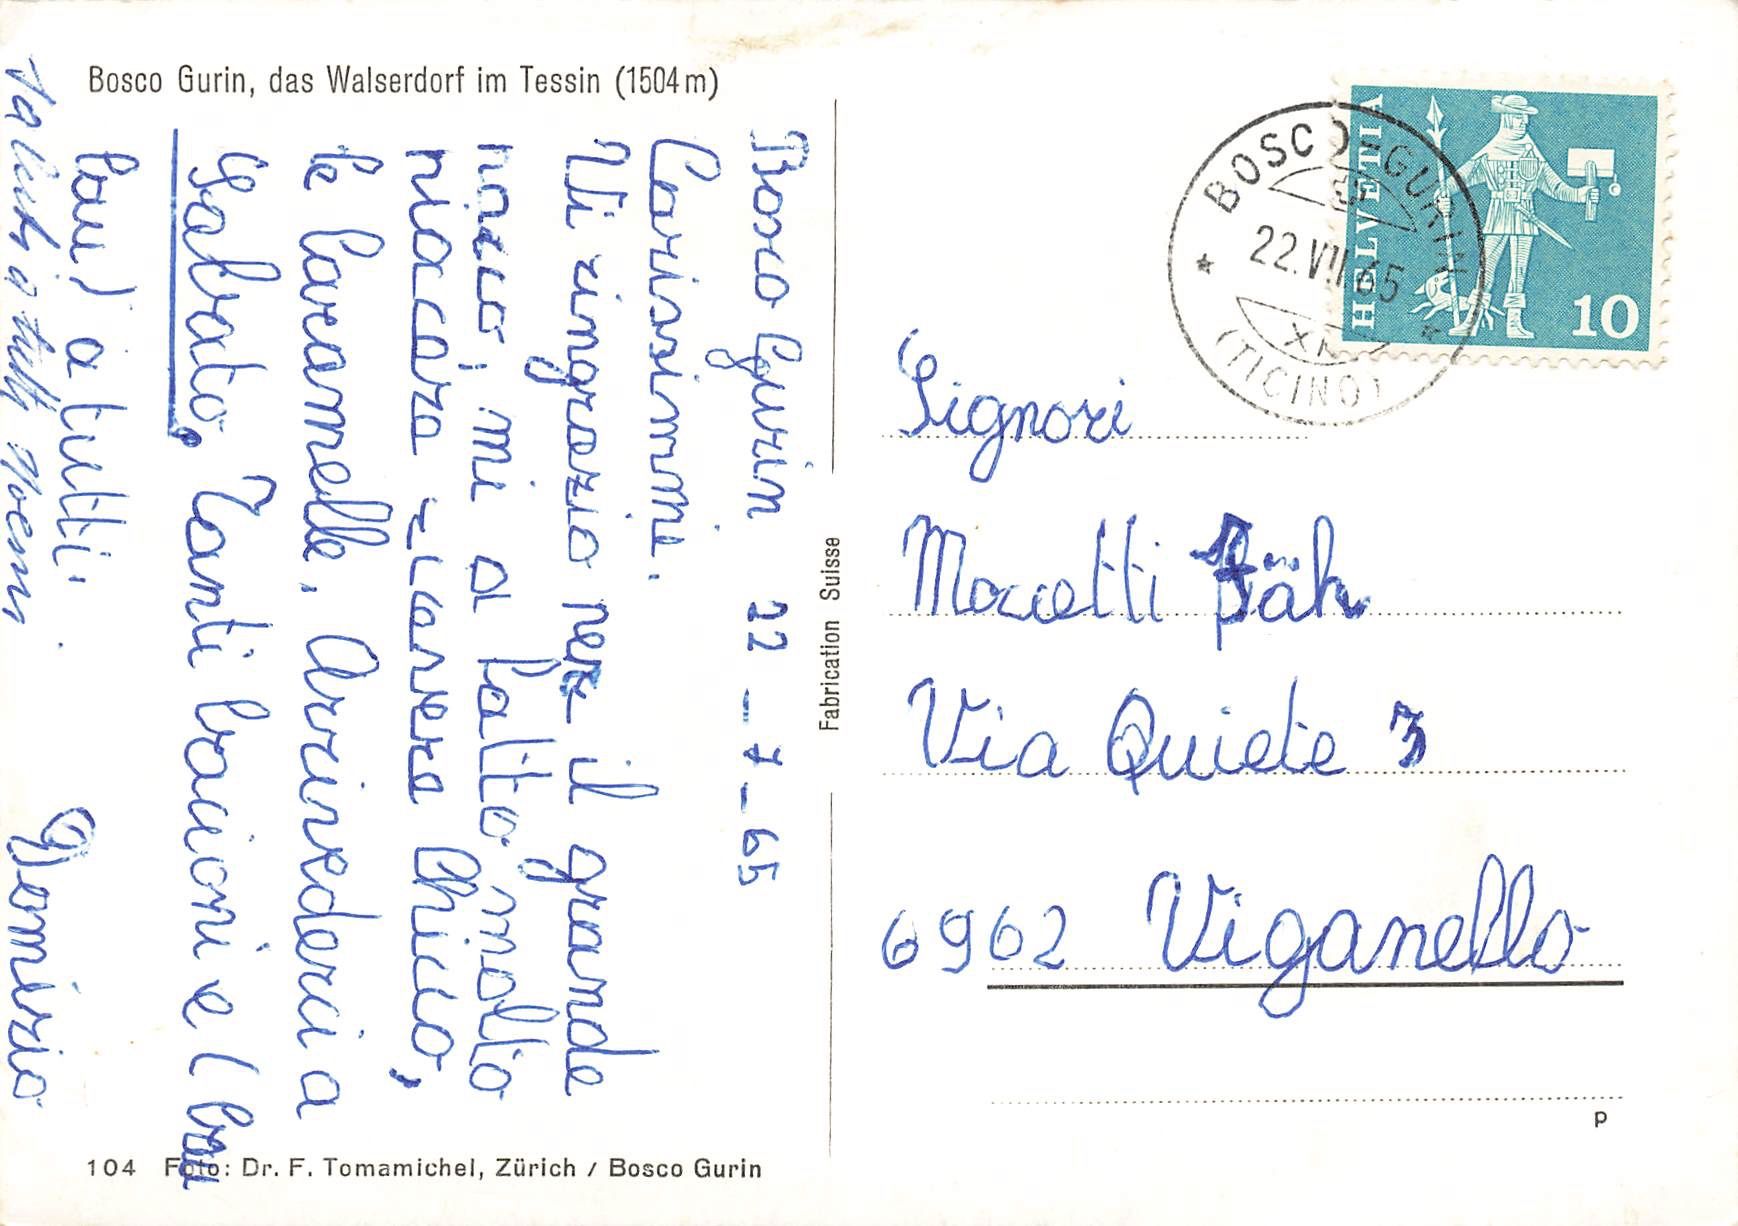 Bosco Gurin, das Walserdorf im Tessin (1504 m)
Bosco Gurin 22 - 7 - 65
Carissimmi.
Vi ringrazio per il grande
pacco, mi a fatto molto
piaccera
Chicco,
le caramelle. Arrivederci a
Sabato. Tanti bacioni e (
a tutti.
a tutti Noemi.
Domizio
104 Foto: Dr. F. Tomamichel, Zürich / Bosco Gurin
Fabrication Suisse
HELVETIA
10
BOSCO-GURIN
22.VII.65
(TICINO)
Signori
Moccetti Fäh
Via Quiete 3
6962 Viganello
P